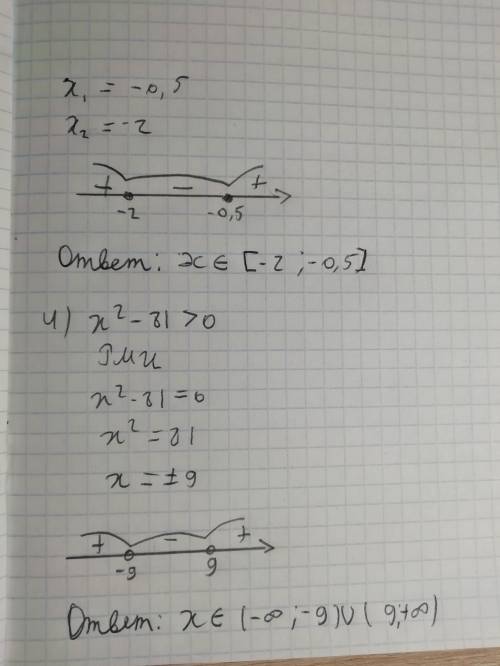 x₁ = -0,5
x₂ = -2
+ - +
-2 -0,5
Ответ: x ∈ [-2 ; -0,5]
4) x² - 81 > 0
РМИ
x² - 81 = 0
x² = 81
x = ±9
+ - +
-9 9
Ответ: x ∈ (-∞ ; -9) ∪ ( 9; +∞)